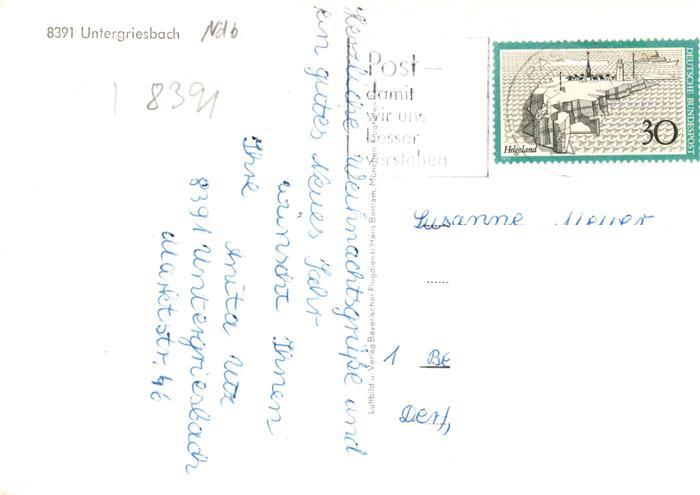 8391 Untergriesbach Ndb
8391
Herzliche Weihnachtsgrüße und
ein gutes Neues Jahr
wünscht Ihnen
Ihre
Anita Utz
8391 Untergriesbach
Marktstr. 46
Post –
damit
wir uns
besser
verstehen
Luftbild u. Verlag Bayerischer Flugdienst Hans Bertram, München Flughafen
DEUTSCHE BUNDESPOST
30
Helgoland
Susanne
1 Be